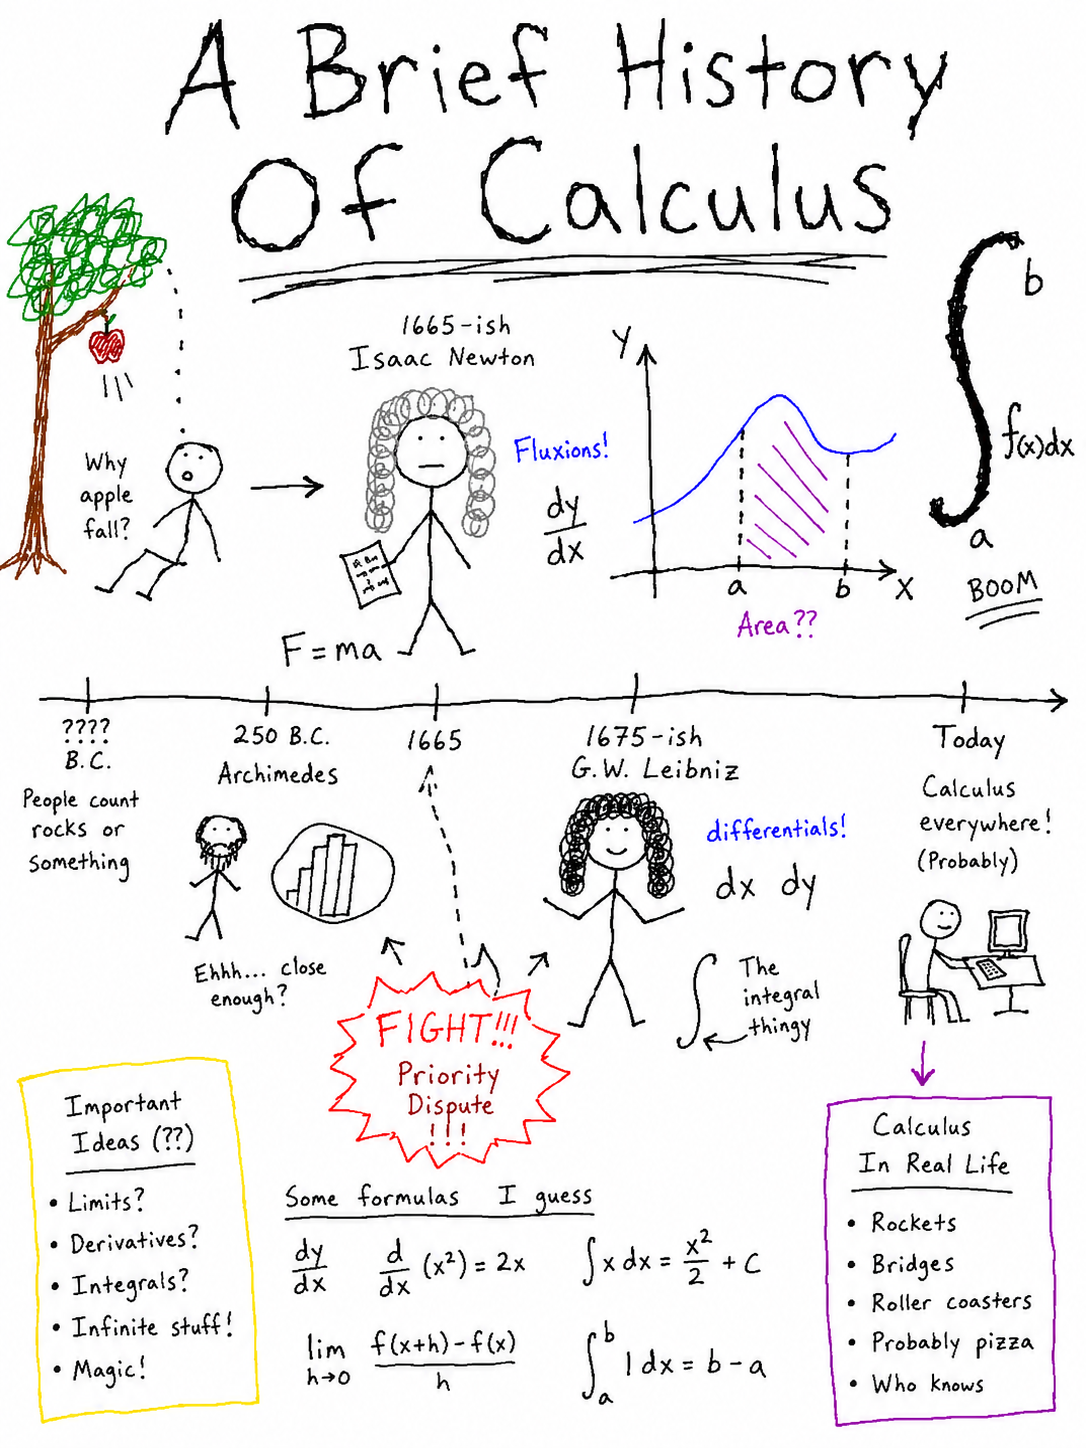 A Brief History
Of Calculus
1665-ish
Isaac Newton
Why
apple
fall?
Fluxions!
dy
dx
F = ma
Y
a
b
X
Area??
b
∫ f(x)dx
a
BOOM
????
B.C.
People count
rocks or
something
250 B.C.
Archimedes
Ehhh... close
enough?
1665
1675-ish
G.W. Leibniz
differentials!
dx dy
∫
The
integral
thingy
Today
Calculus
everywhere!
(Probably)
FIGHT!!!
Priority
Dispute
!!!
Important
Ideas (??)
• Limits?
• Derivatives?
• Integrals?
• Infinite stuff!
• Magic!
Some formulas I guess
dy/dx
d/dx (x²) = 2x
∫ x dx = x²/2 + C
lim h→0 f(x+h) – f(x) / h
∫ₐᵇ 1 dx = b – a
Calculus
In Real Life
• Rockets
• Bridges
• Roller coasters
• Probably pizza
• Who knows